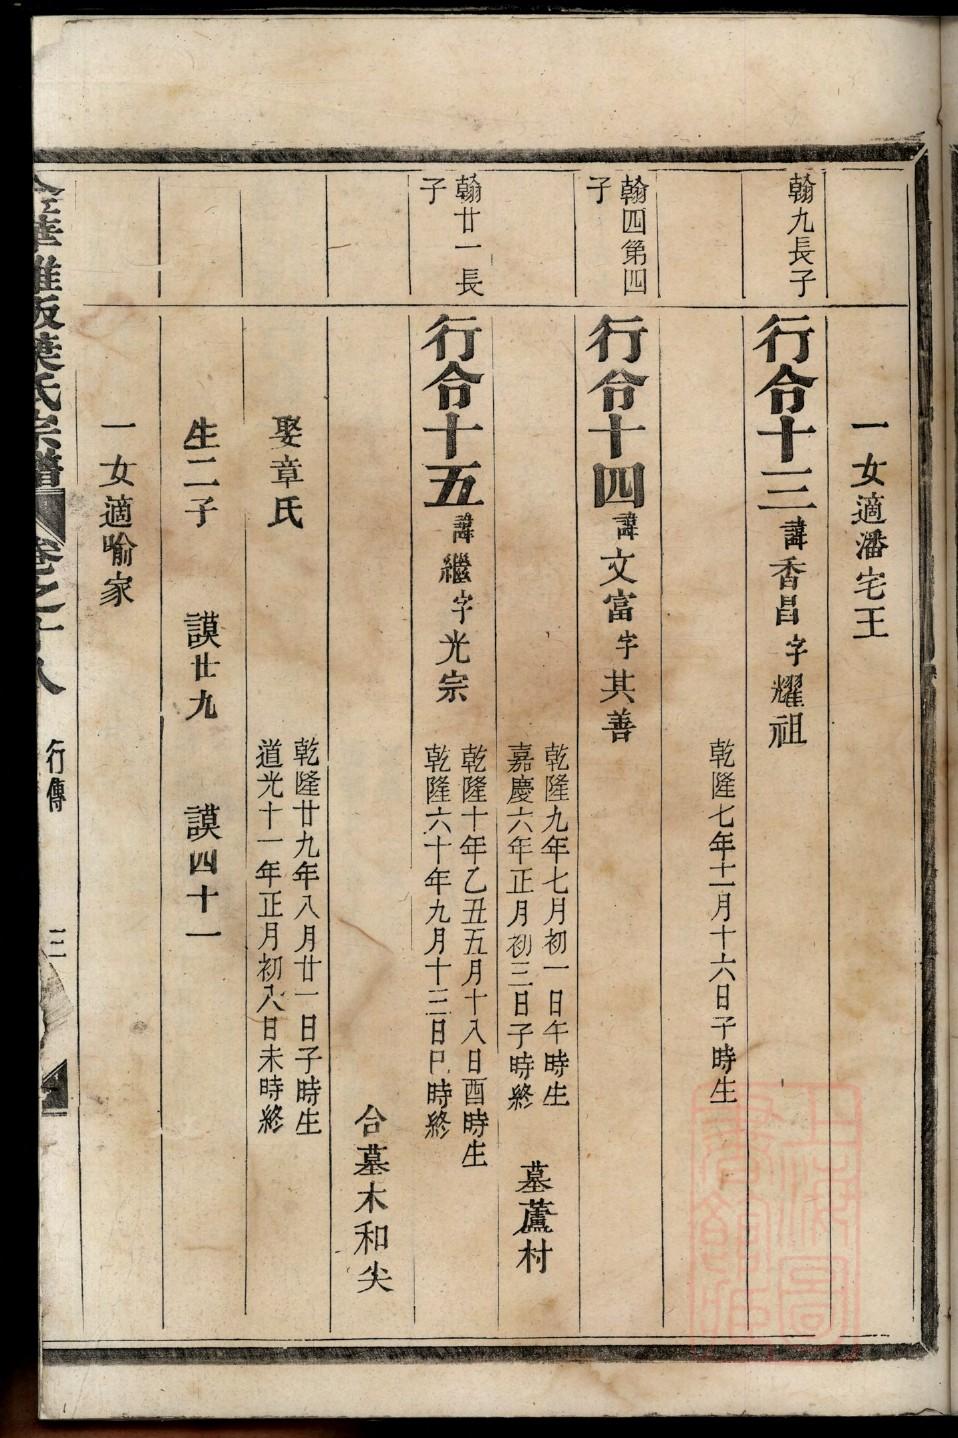 一女適潘宅王
翰九長子
行令十三諱香昌字耀祖
乾隆七年十一月十六日子時生
翰四第四
子
行令十四諱文富字其善
乾隆九年七月初一日午時生
嘉慶六年正月初三日子時終
墓蘆村
翰廿一長
子
行令十五諱繼字光宗
乾隆十年乙丑五月十八日酉時生
乾隆六十年九月十三日巳時終
合墓木和尖
娶章氏
乾隆廿九年八月廿一日子時生
道光十一年正月初八日未時終
生二子 謨廿九 謨四十一
一女適喻家
葉氏宗譜 卷之十八 行傳 三
上海圖書館藏